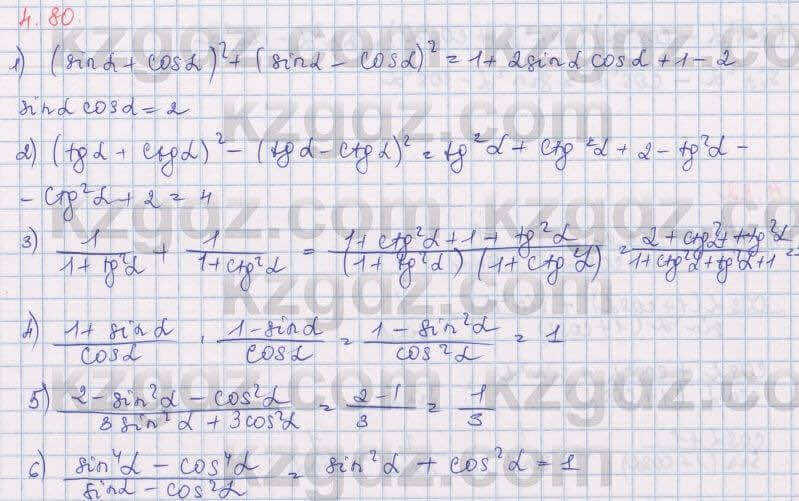 4.80.
1) (sinα + cosα)² + (sinα - cosα)² = 1 + 2sinα cosα + 1 - 2
sinα cosα = 2
2) (tgα + ctgα)² - (tgα - ctgα)² = tg²α + ctg²α + 2 - tg²α -
- ctg²α + 2 = 4
3) 1/(1 + tg²α) + 1/(1 + ctg²α) = (1 + ctg²α + 1 + tg²α)/((1 + tg²α)(1 + ctg²α)) = (2 + ctg²α + tg²α)/(1 + ctg²α + tg²α + 1) =
4) (1 + sinα)/cosα · (1 - sinα)/cosα = (1 - sin²α)/cos²α = 1
5) (2 - sin²α - cos²α)/(3sin²α + 3cos²α) = (2 - 1)/3 = 1/3
6) (sin⁴α - cos⁴α)/(sinα - cos²α) = sin²α + cos²α = 1
kzgdz.com